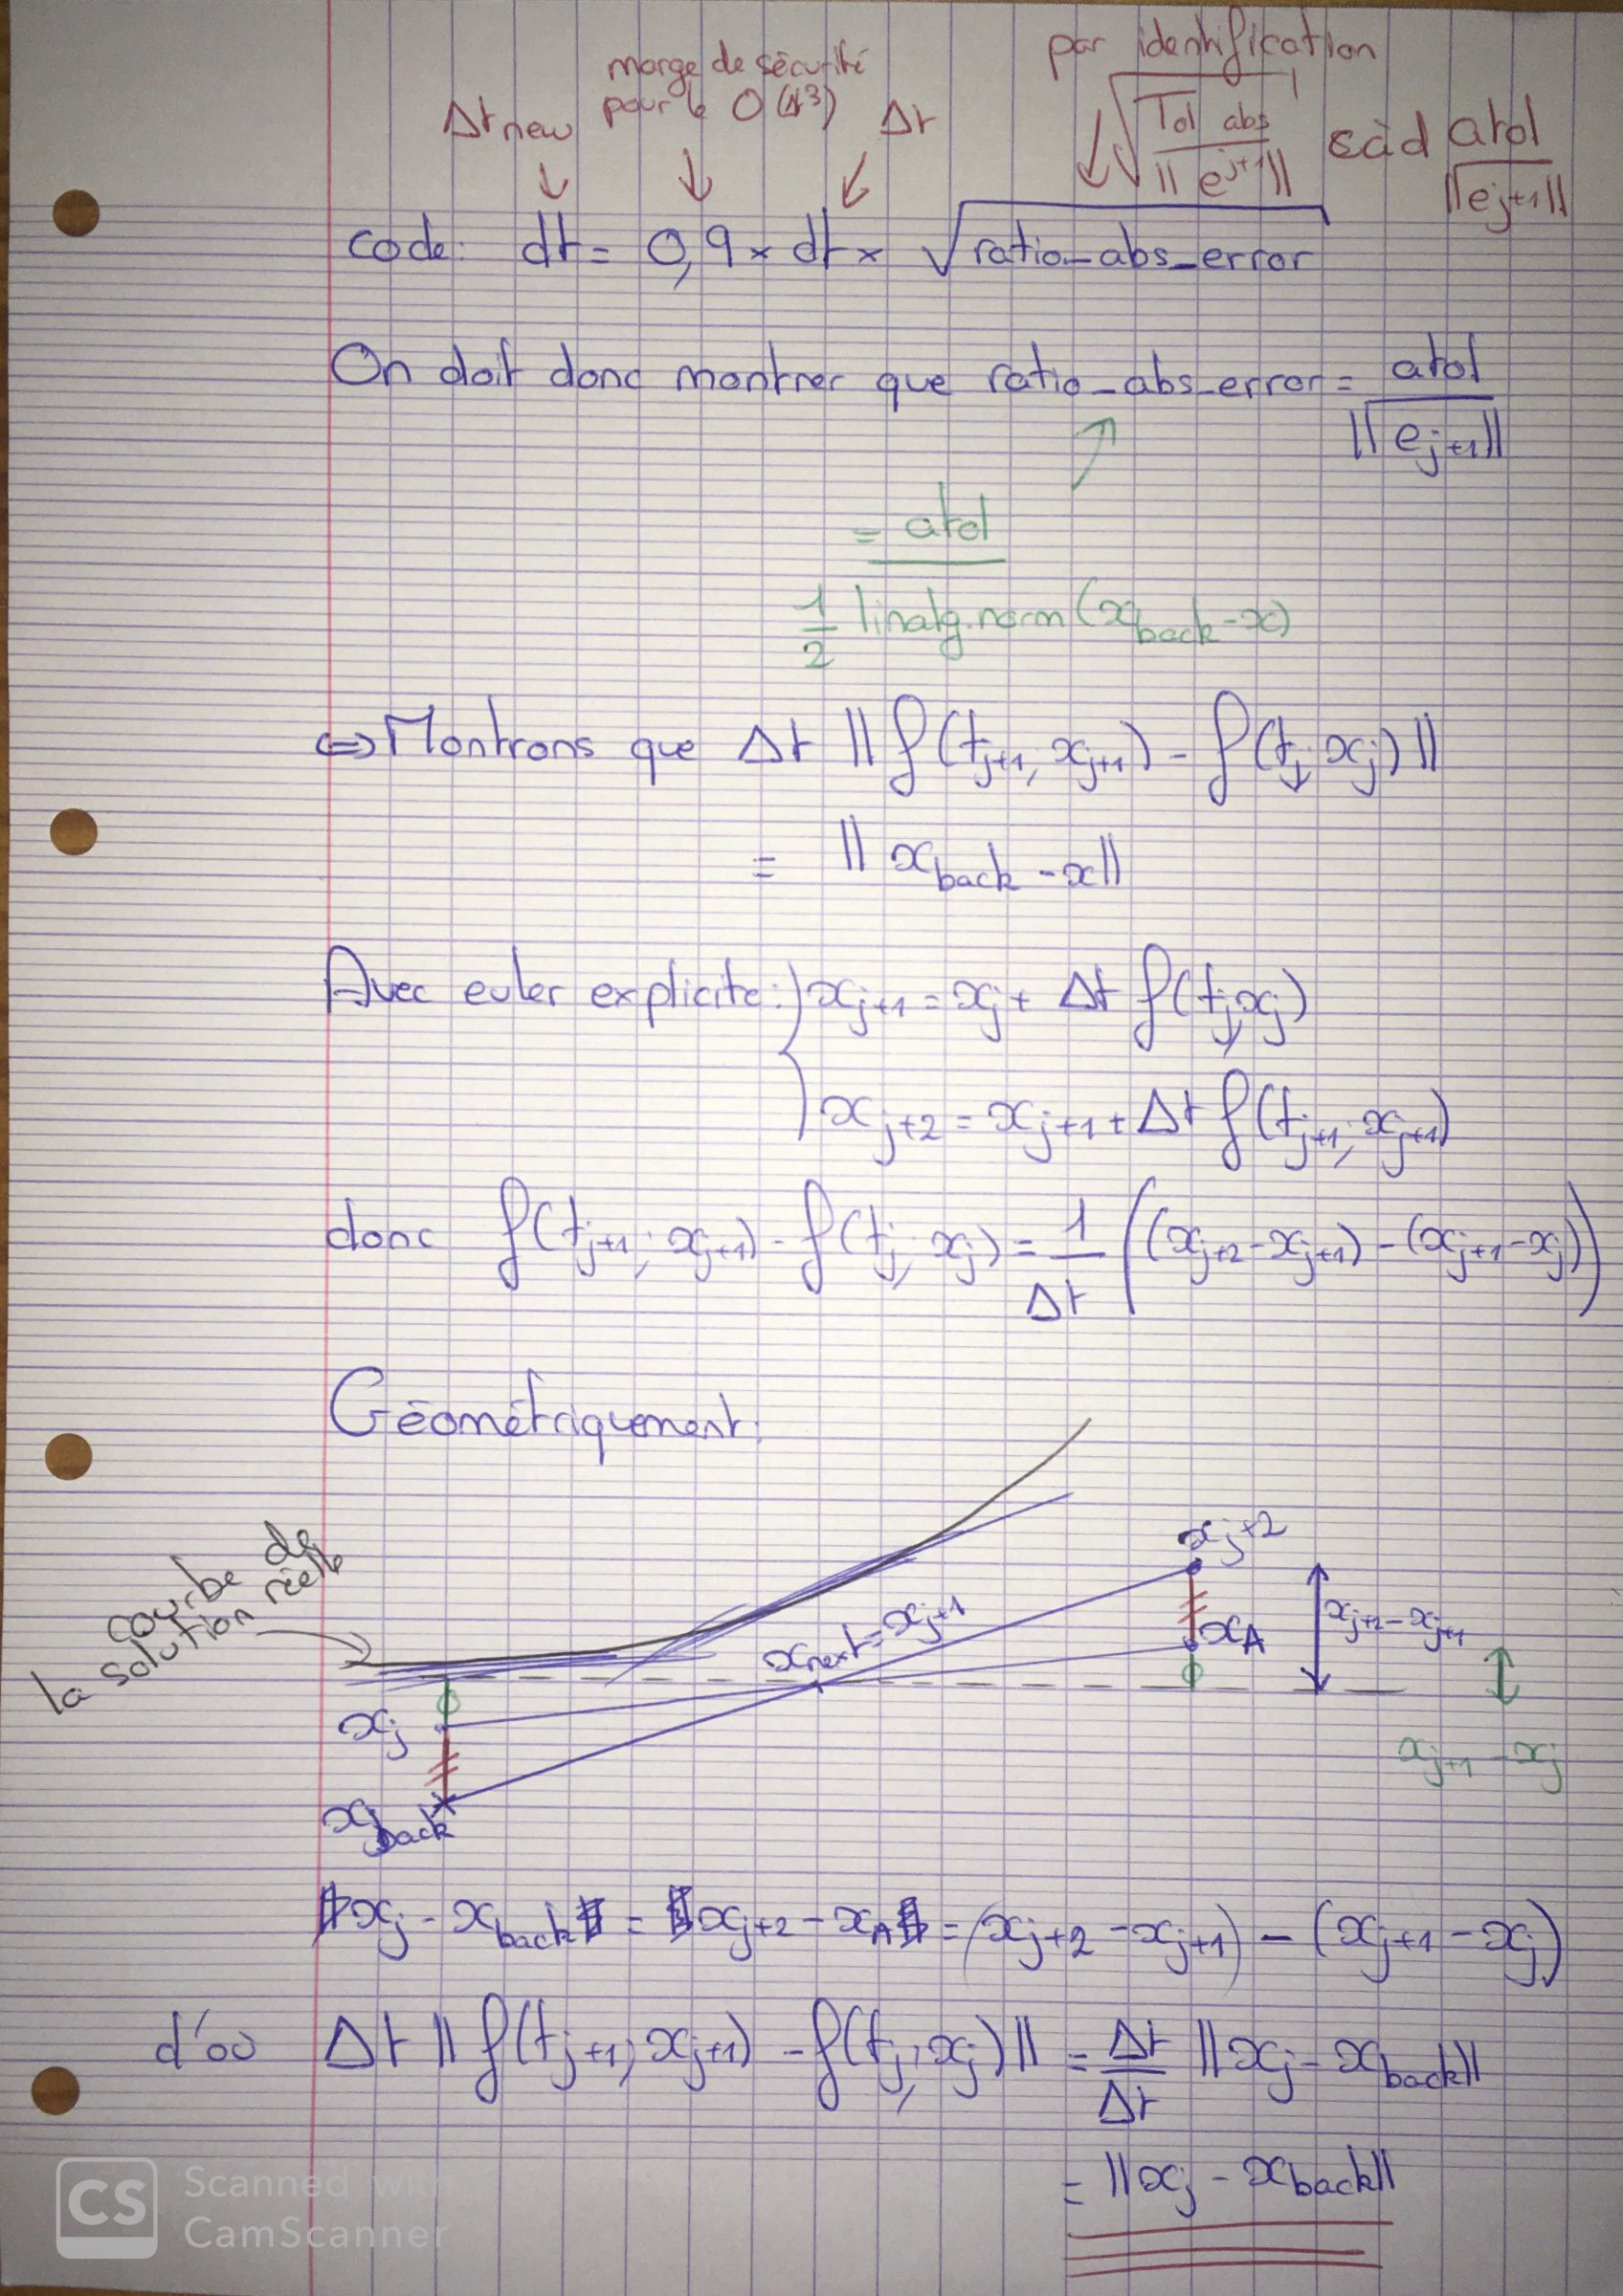 par identification
marge de sécurité
pour le O(Δt³)
Δt new
Δt
√(Tol abs / ||e^{j+1}||) càd atol / ||e_{j+1}||
code: dt = 0,9 × dt × √ratio_abs_error
On doit donc montrer que ratio_abs_error = atol / ||e_{j+1}||
= atol / (1/2 linalg.norm(x_back - x))
⇔ Montrons que Δt ||f(t_{j+1}, x_{j+1}) - f(t_j, x_j)||
= ||x_back - x||
Avec euler explicite: { x_{j+1} = x_j + Δt f(t_j, x_j)
x_{j+2} = x_{j+1} + Δt f(t_{j+1}, x_{j+1})
donc f(t_{j+1}, x_{j+1}) - f(t_j, x_j) = 1/Δt ((x_{j+2} - x_{j+1}) - (x_{j+1} - x_j))
Géométriquement:
courbe de
la solution réelle
x_{j+2}
x_next = x_{j+1}
x_A
x_{j+2} - x_{j+1}
x_j
x_{j+1} - x_j
x_back
x_j - x_back = x_{j+2} - x_A = (x_{j+2} - x_{j+1}) - (x_{j+1} - x_j)
d'où Δt ||f(t_{j+1}, x_{j+1}) - f(t_j, x_j)|| = Δt/Δt ||x_j - x_back||
= ||x_j - x_back||
CS
Scanned with
CamScanner